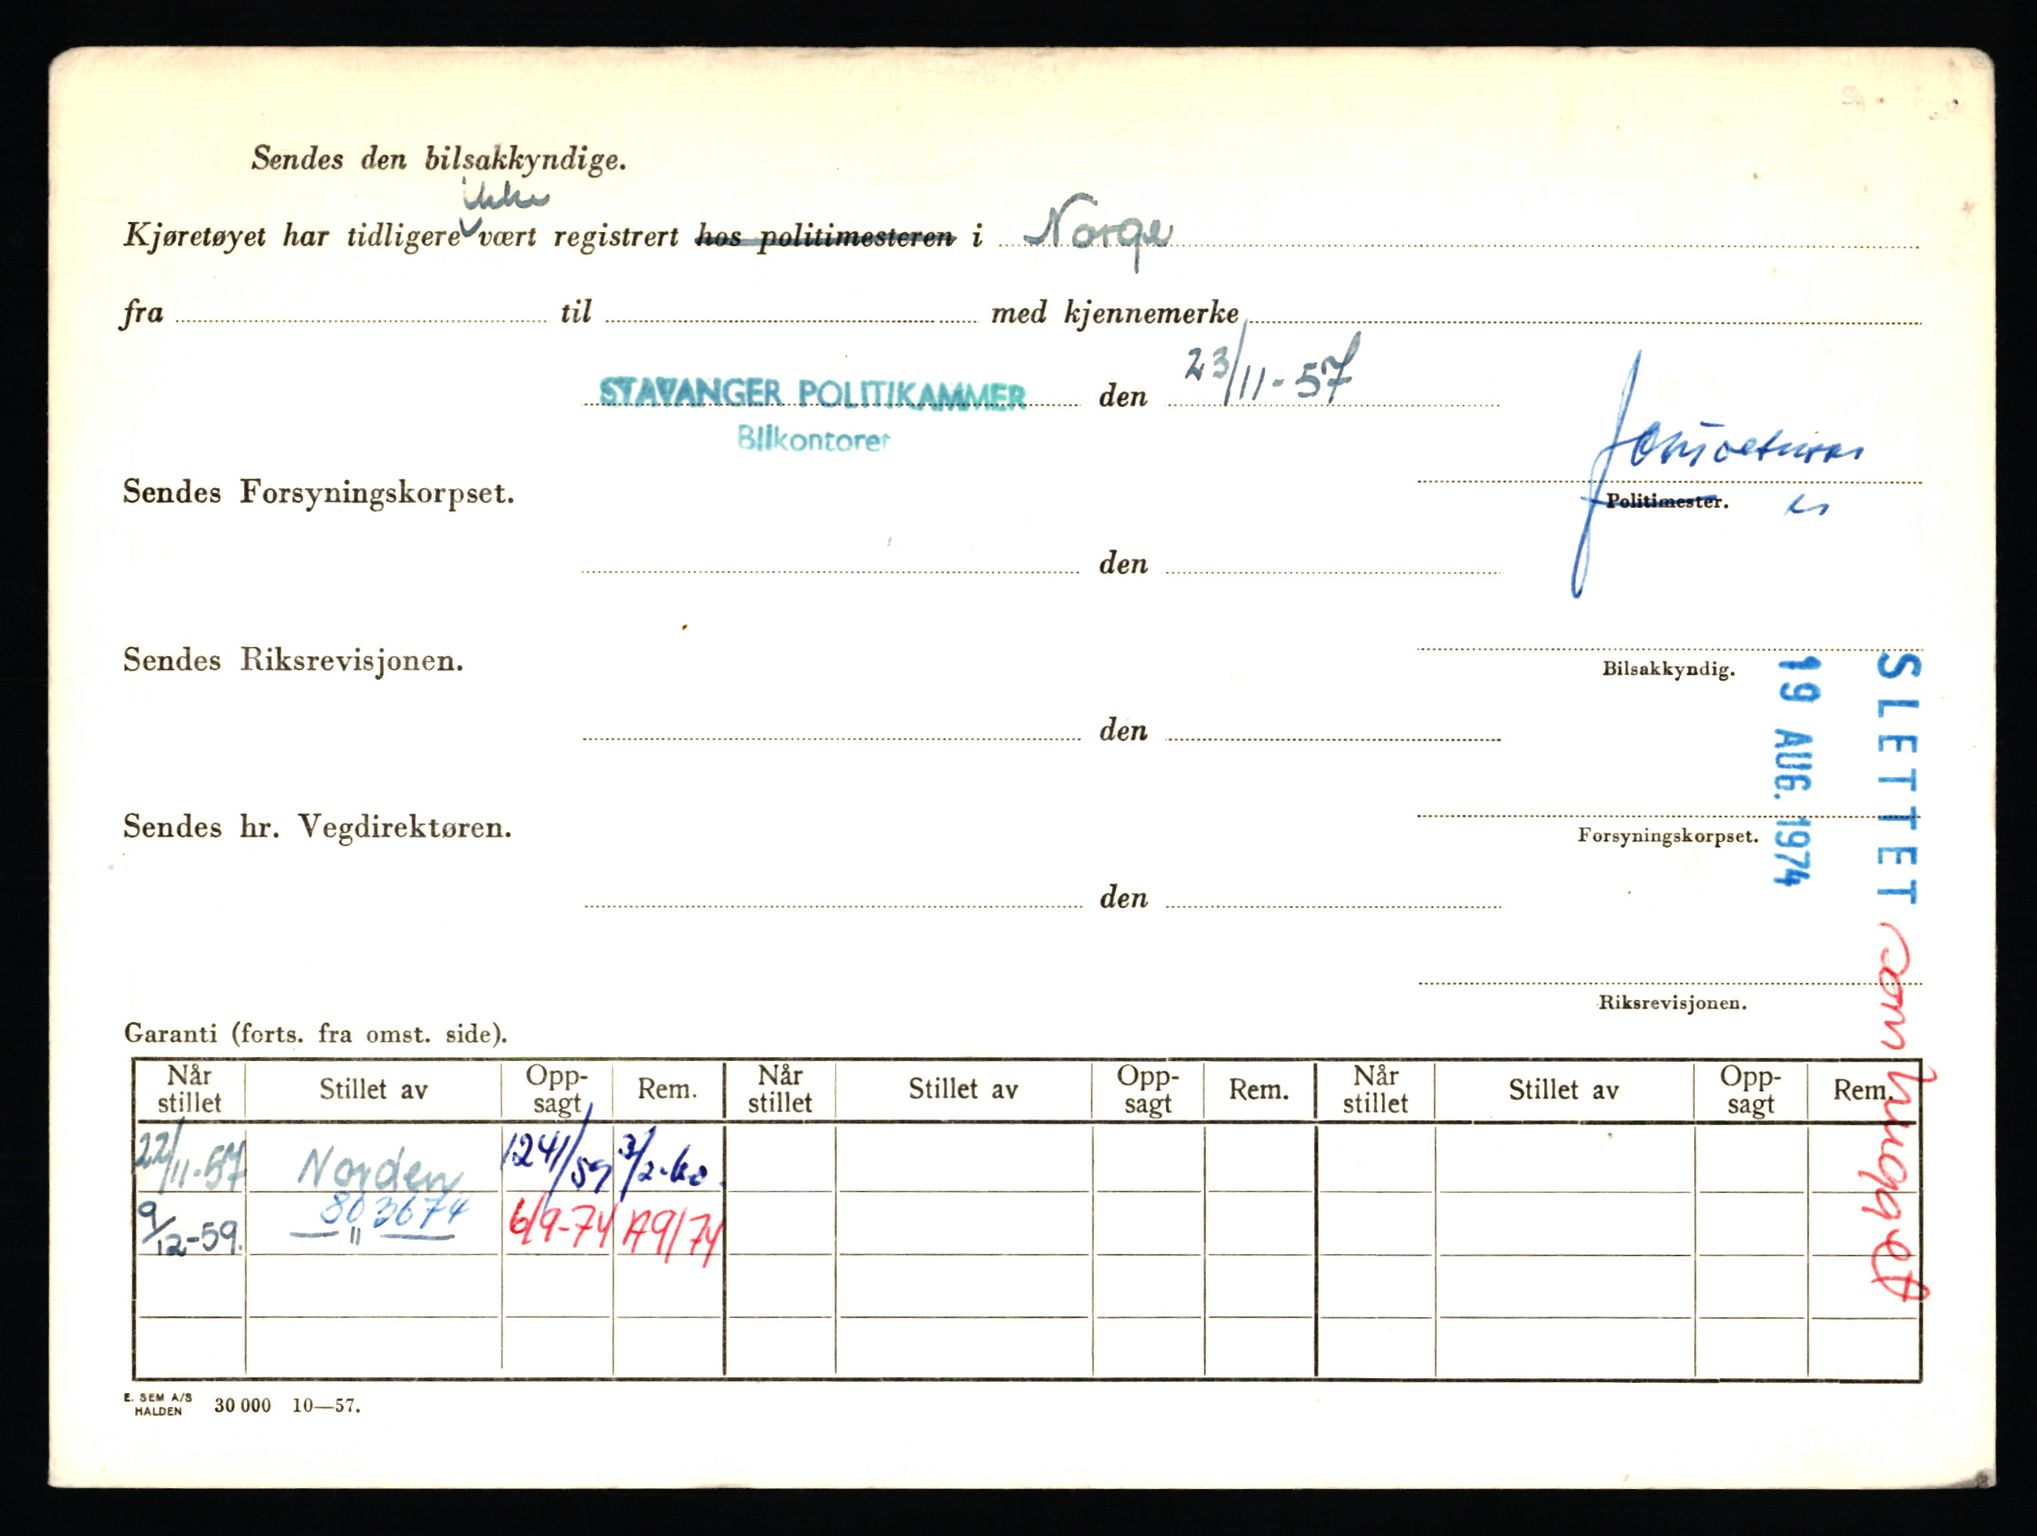 Sendes den bilsakkyndige.
ikke
Kjøretøyet har tidligere vært registrert hos politimesteren i Norge
fra til med kjennemerke
STAVANGER POLITIKAMMER den 23/11-57
Bilkontoret
Sendes Forsyningskorpset.
Politimester.
den
Sendes Riksrevisjonen.
Bilsakkyndig.
den
Sendes hr. Vegdirektøren.
Forsyningskorpset.
den
Riksrevisjonen.
SLETTET
19 AUG. 1974
Garanti (forts. fra omst. side).
Når stillet Stillet av Opp-sagt Rem. Når stillet Stillet av Opp-sagt Rem. Når stillet Stillet av Opp-sagt Rem.
22/11-57 Norden 1241/59 3/2-60.
803674
9/12-59. —"— 6/9-74 179/74
E. SEM A/S
HALDEN 30 000 10—57.